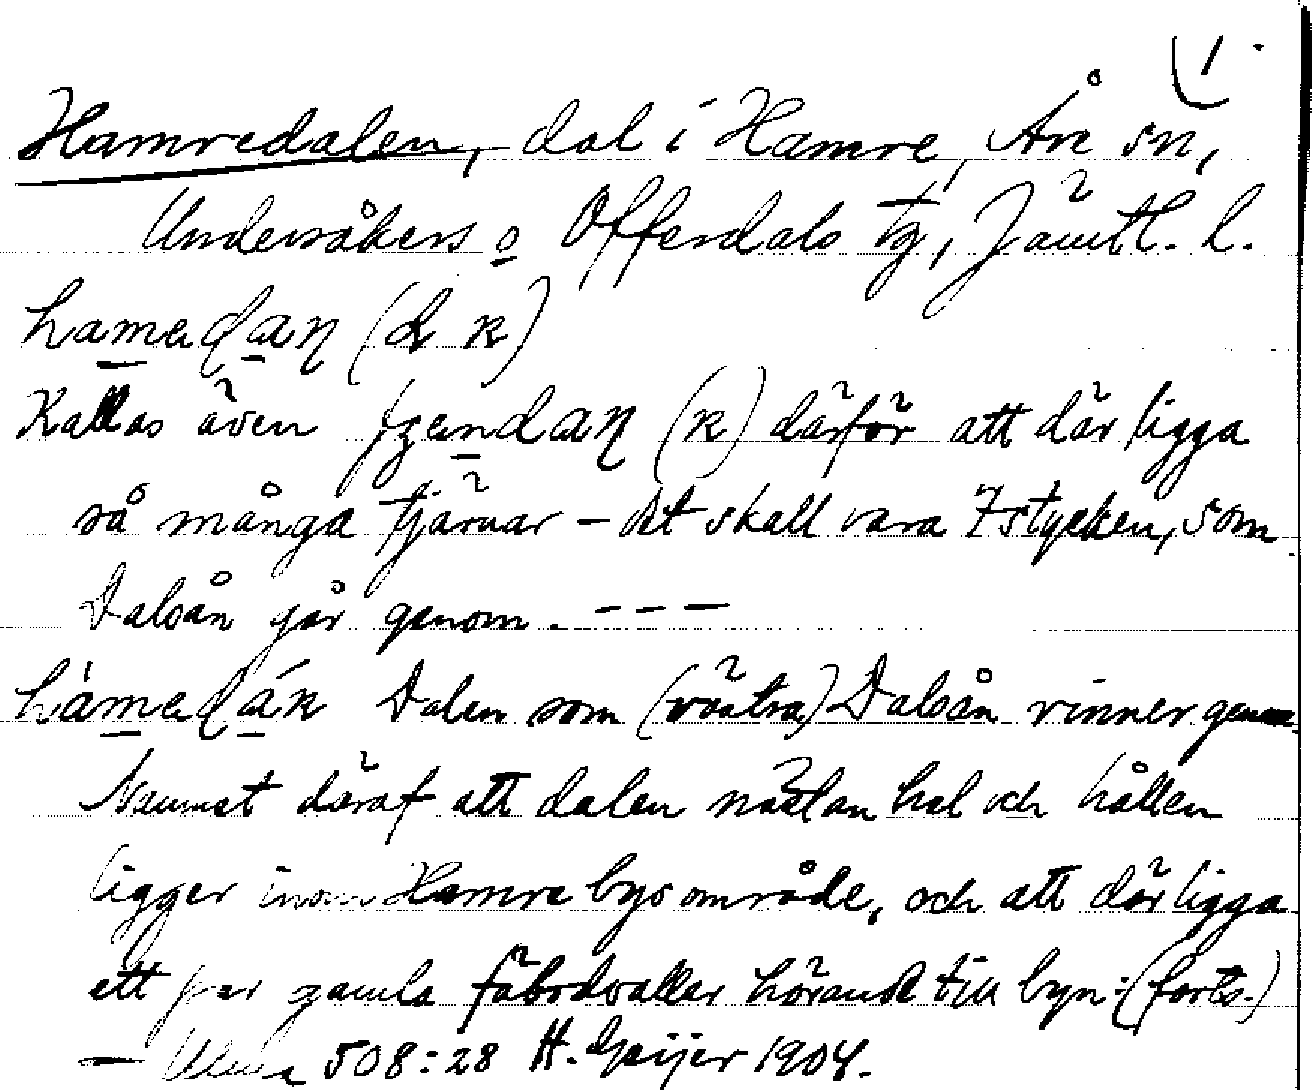 1.
Hamredalen, dal i Hamre, Åre sn,
Undersåkers o Offerdals tg, Jämtl. l.
hamedaŋ (d k)
Kallas även (k) därför att där ligga
så många tjärnar - det skall vara 7 stycken, som
Dalsån går genom. - - -
hàmedán Dalen som (västra) Dalsån rinner genom
Namnet däraf att dalen nästan hel och hållen
ligger inom Hamre bys område, och att där ligga
ett par gamla fäbodvallar hörande till byn: (forts.)
— 508:28 H. Geijer 1904.